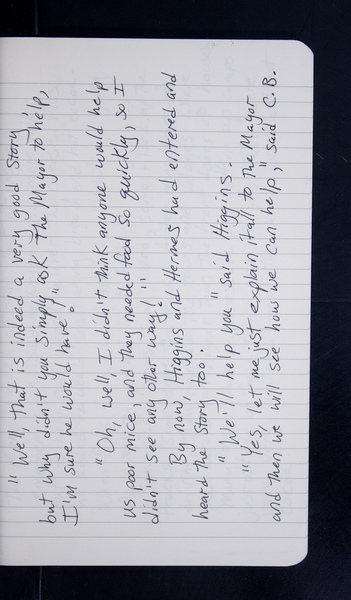 "Well, that is indeed a very good story
but why didn't you simply ask The Mayor to help,
I'm sure he would have."
"Oh, well, I didn't think anyone would help
us poor mice, and they needed food so quickly, so I
didn't see any other way!"
By now, Higgins and Hermes had entered and
heard the Story too.
"We'll help you" said Higgins.
"Yes, let me just explain it all to The Mayor
and then we will see how we can help," said C.B.